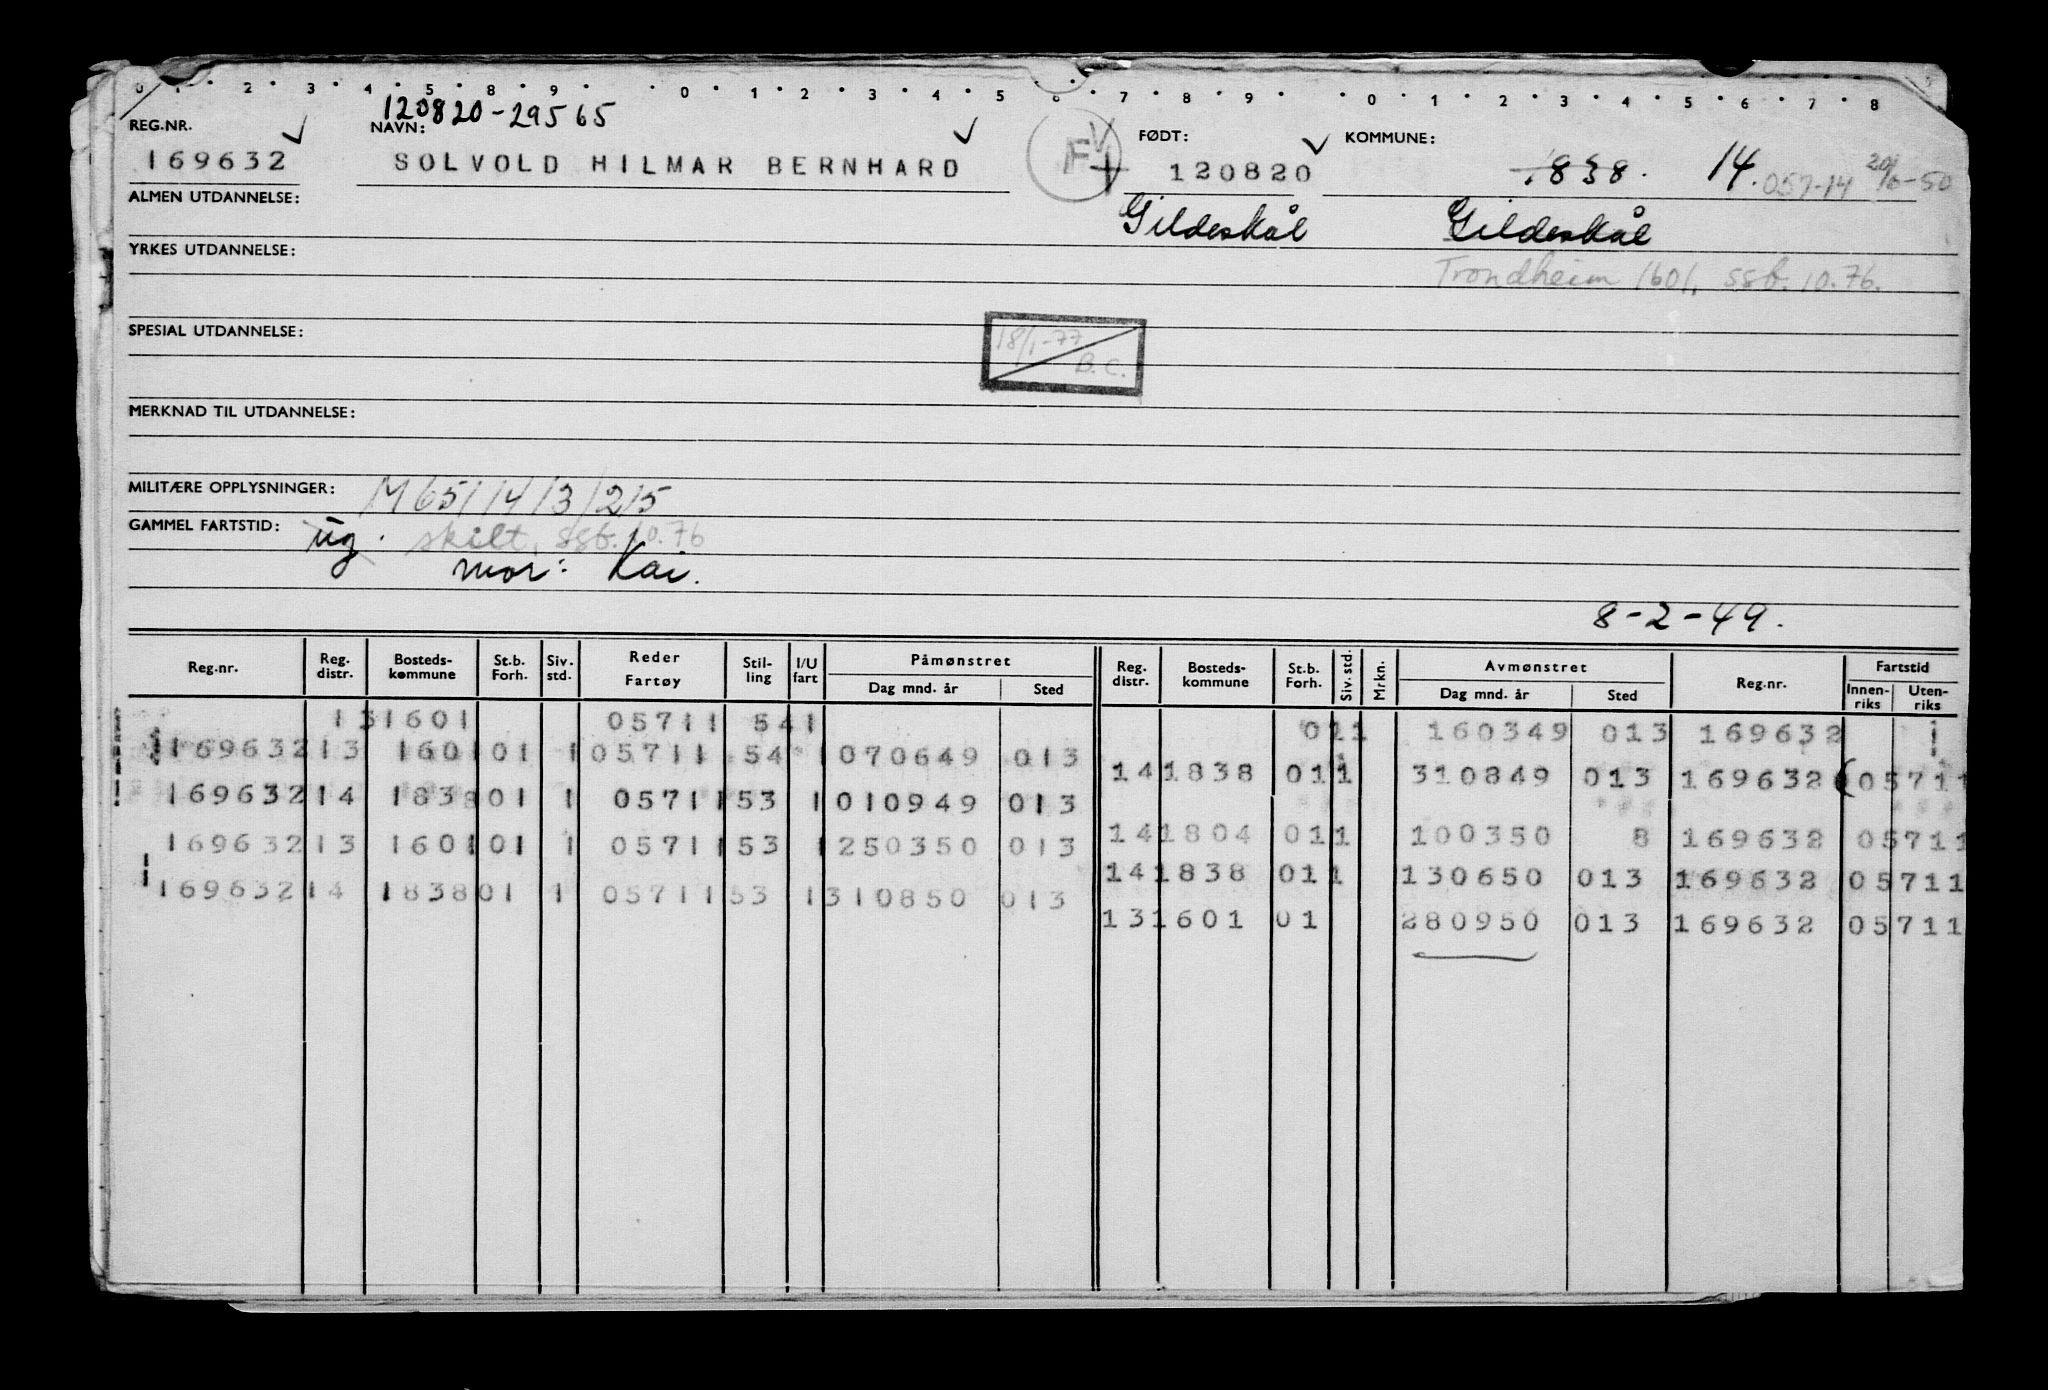 0 1 2 3 4 5 8 9 0 1 2 3 4 5 6 7 8 9 0 1 2 3 4 5 6 7 8
120820-29565
REG.NR. NAVN: FØDT: KOMMUNE:
169632 SOLVOLD HILMAR BERNHARD F 120820 1838. 14. 057-14 20/6-50
ALMEN UTDANNELSE: Gildeskål Gildeskål
YRKES UTDANNELSE: Trondheim 1601, ssb. 10.76.
SPESIAL UTDANNELSE: 18/1-77
B.C.
MERKNAD TIL UTDANNELSE:
MILITÆRE OPPLYSNINGER: M65/14/3/2/5
GAMMEL FARTSTID: ug. skilt, ssb. 10.76
mor: Kai.
8-2-49.
Reg.nr. Reg. distr. Bosteds-kommune St.b. Forh. Siv. std. Reder Fartøy Stil-ling I/U fart Påmønstret Dag mnd. år Sted Reg. distr. Bosteds-kommune St.b. Forh. Siv. std. Mrkn. Avmønstret Dag mnd. år Sted Reg.nr. Fartstid Innen-riks Uten-riks
131601 05711 541 011 160349 013 169632 1
169632 13 1601 01 1 05711 54 1 070649 013 141838 011 310849 013 169632 05711
169632 14 1838 01 1 05711 53 1 010949 013 141804 011 100350 8 169632 05711
169632 13 1601 01 1 05711 53 1 250350 013 141838 011 130650 013 169632 05711
169632 14 1838 01 1 05711 53 1 310850 013 131601 01 280950 013 169632 05711